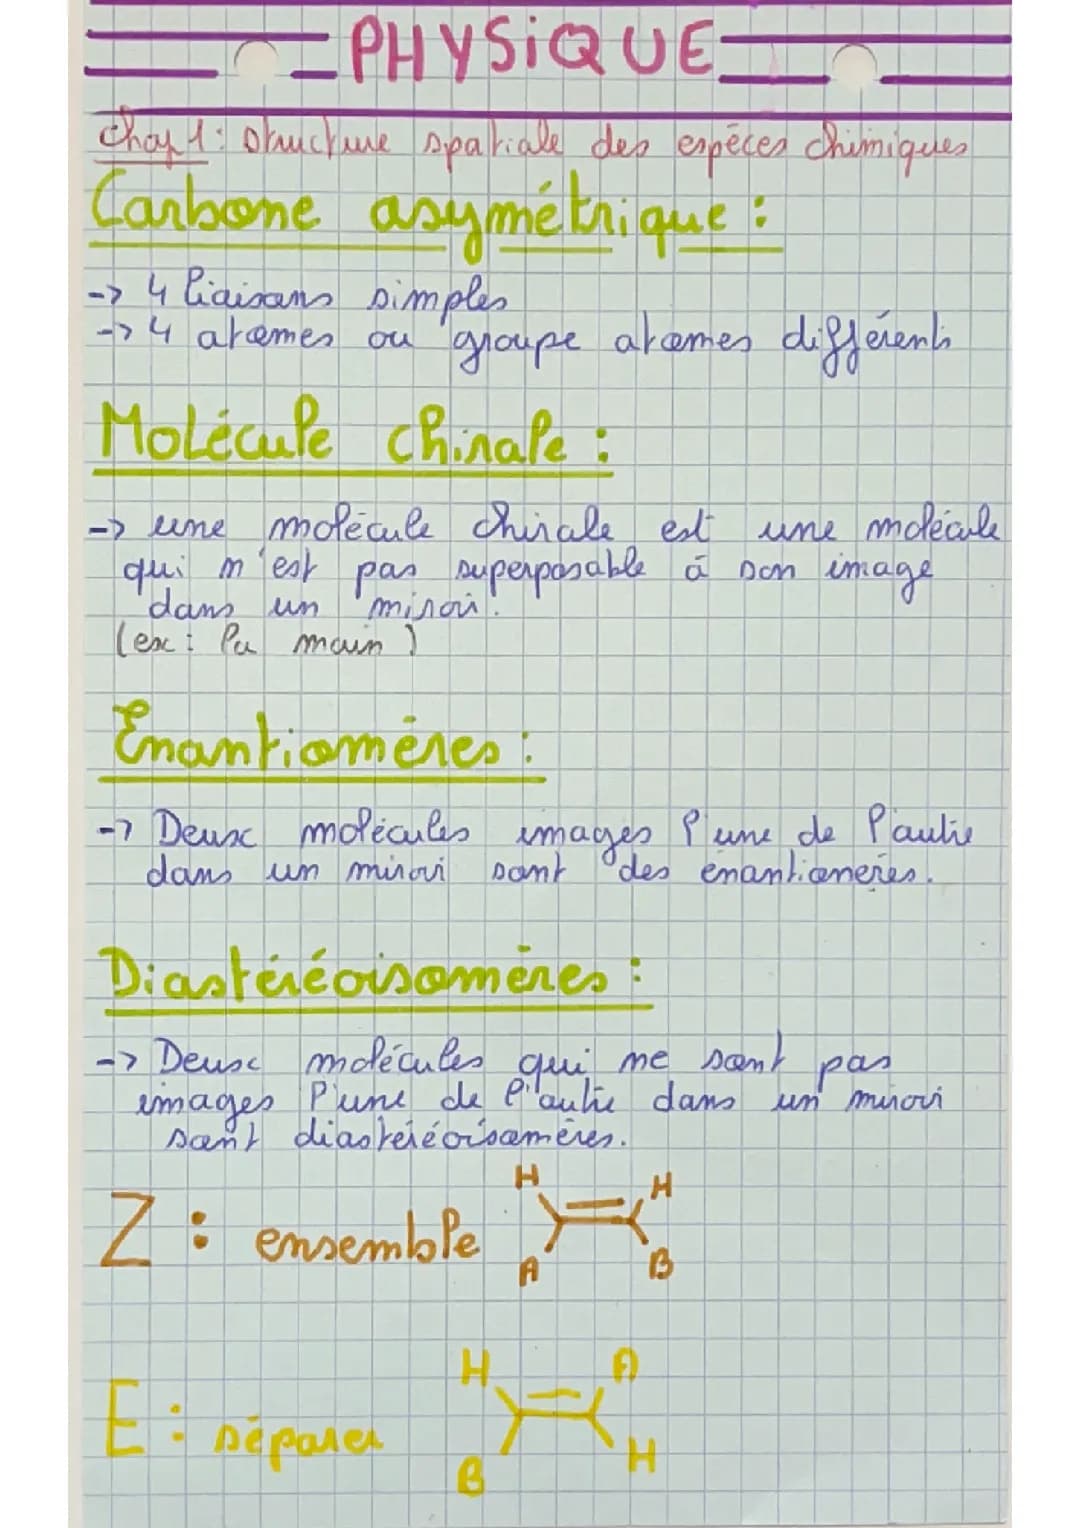 PHYSIQUE
Chap 1: structure spatiale des espèces chimiques
Carbone asymétrique :
-> 4 liaisons simples
-> 4 atomes ou groupe atomes différents
Molécule chirale :
-> une molécule chirale est une molécule
qui n'est pas superposable à son image
dans un miroir.
(ex : la main)
Enantiomères :
-> Deux molécules images l'une de l'autre
dans un miroir sont des énantiomères.
Diastéréoisomères :
-> Deux molécules qui ne sont pas
images l'une de l'autre dans un miroir
sont diastéréoisomères.
H H
Z : ensemble
A B
H A
E : séparer
B H